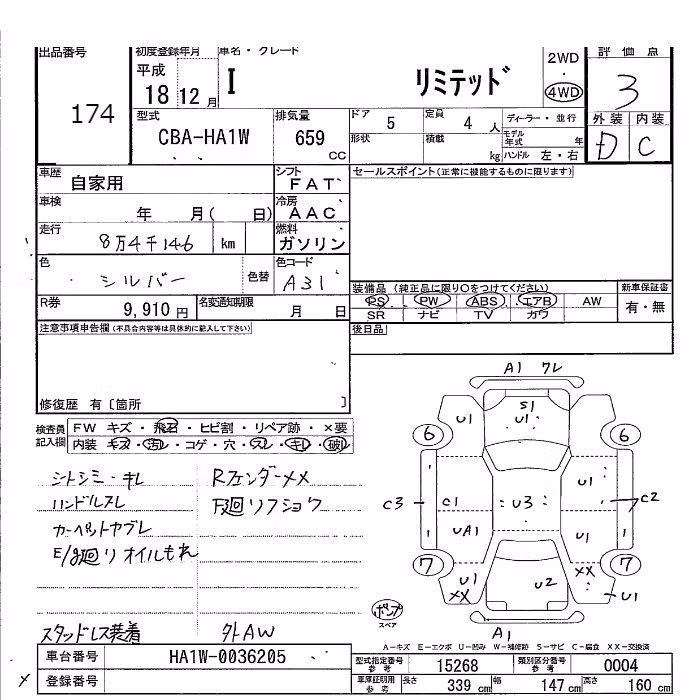 出品番号 初度登録年月 車名・グレード 評価点
174 平成 18 12 月 I リミテッド 2WD ・ 4WD 3
型式 CBA-HA1W 排気量 659 CC
ドア 5 定員 4 人 ディーラー・並行
形状 積載 kg モデル年式 年 ハンドル 左・右
外装 D 内装 C
車歴 自家用 シフト FAT セールスポイント(正常に機能するものに限ります)
車検 年 月( 日) 冷房 AAC
走行 8万4千146 km 燃料 ガソリン
色 シルバー 色替 色コード A31
装備品 (純正品に限り○をつけてください) 新車保証書
PS PW ABS エアB AW 有・無
SR ナビ TV カワ
R券 9,910 円 名変通知期限 月 日 後日品
注意事項申告欄(不具合内容等は具体的に記入して下さい)
修復歴 有〔箇所 〕
検査員記入欄 FW キズ・飛石・ヒビ割・リペア跡・×要
内装 キズ・汚レ・コゲ・穴・スレ・キレ・破レ
シトシミ・キレ RフェンダーXX
ハンドルスレ 下廻リフショク
カーペットヤブレ
E/g廻リオイルもれ
スタッドレス装着 外AW
A1 ワレ
S1
U1 U1
6 6
U1
C3 C1 U3 C2
UA1 U1
7 7
XX
U1 U2
XX U1
ポンプ
スペア
A1
A-キズ E-エクボ U-凹み W-補修跡 S-サビ C-腐食 XX-交換済
車台番号 HA1W-0036205 型式指定番号 参考 15268 類別区分番号 参考 0004
登録番号 車庫証明用 参考 長さ 339 cm 幅 147 cm 高さ 160 cm